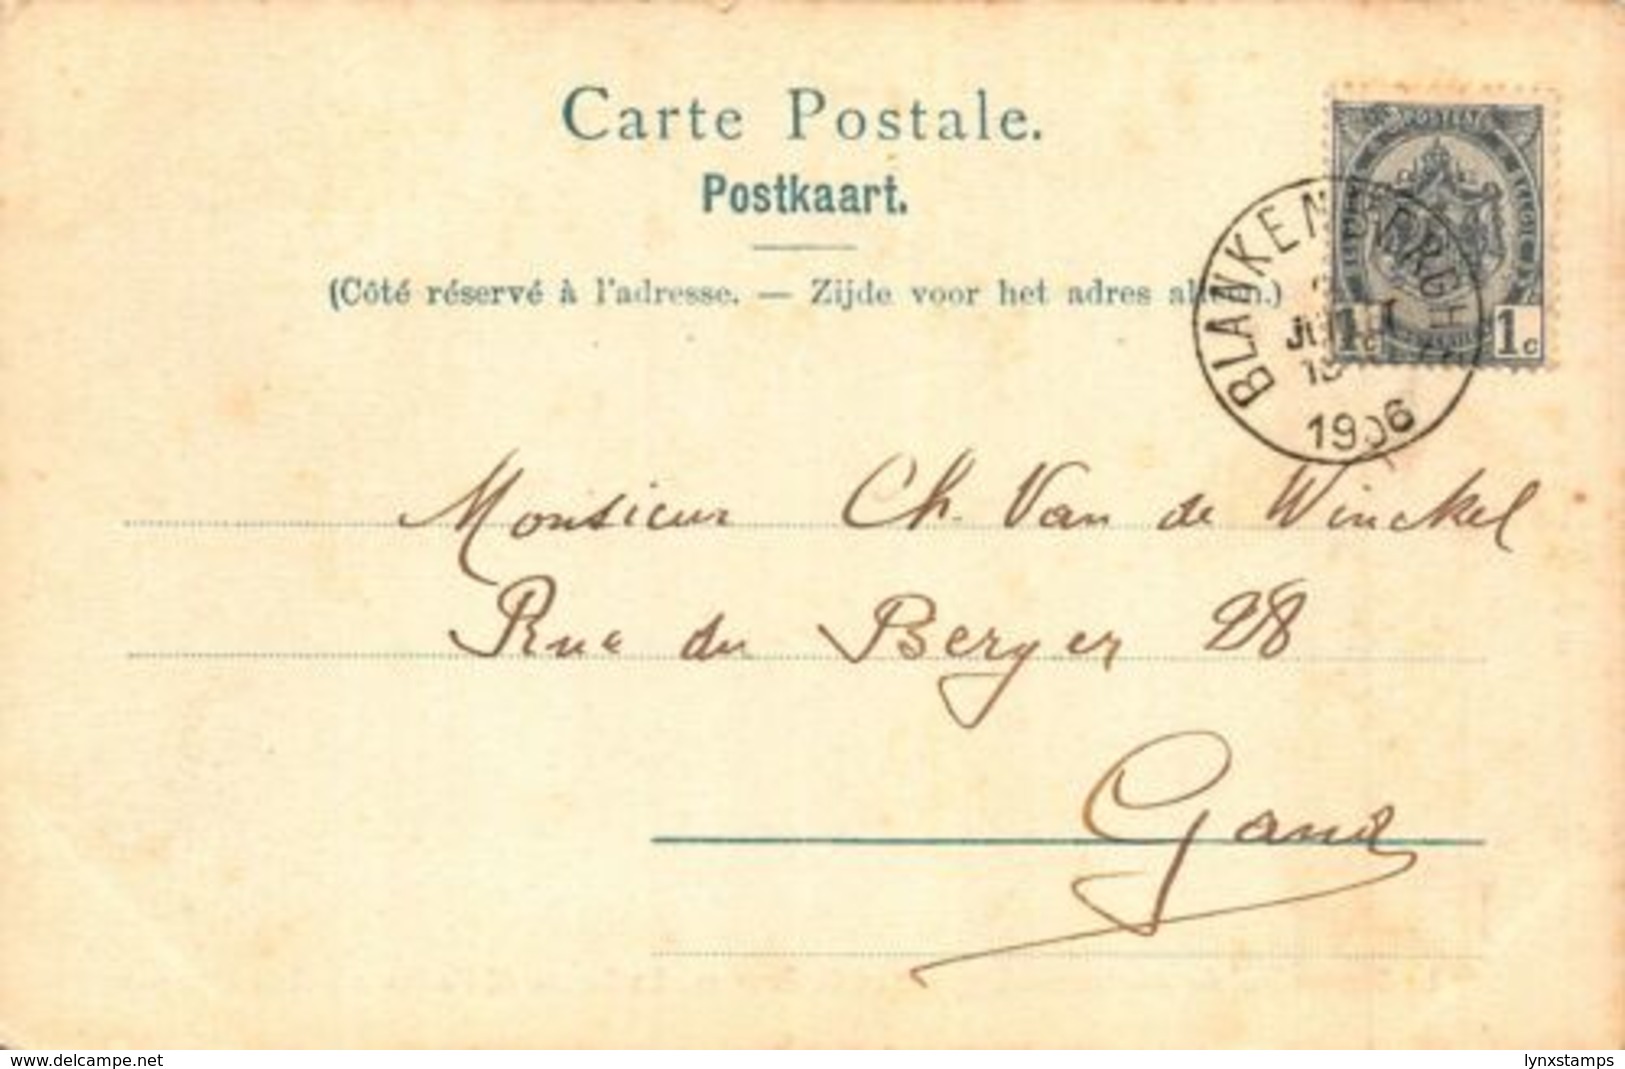 Carte Postale.
Postkaart.
(Côté réservé à l'adresse. — Zijde voor het adres alleen.)
POSTES
BELGIQUE
1 1c
BLANKENBERGHE
1906
Monsieur Ch. Van de Winckel
Rue du Berger 28
Gand
www.delcampe.net
lynxstamps